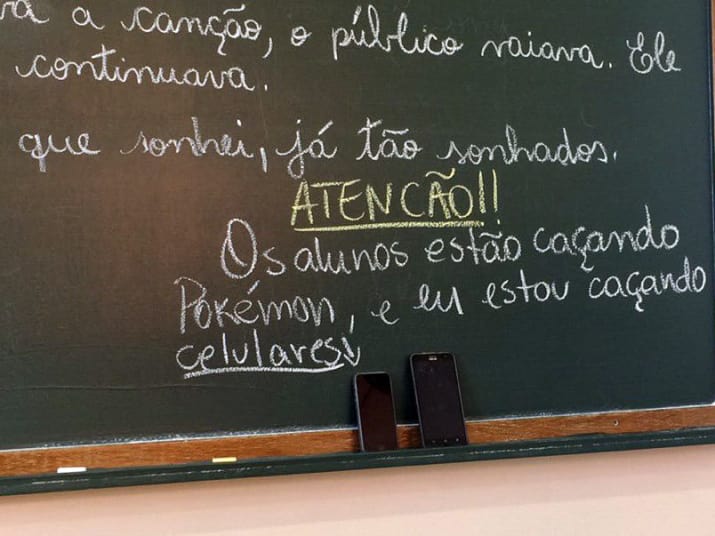 a canção, o público vaiava. Ele
continuava.
que sonhei, já tão sonhados.
ATENCÃO!!
Os alunos estão caçando
Pokémon, e eu estou caçando
celulares!